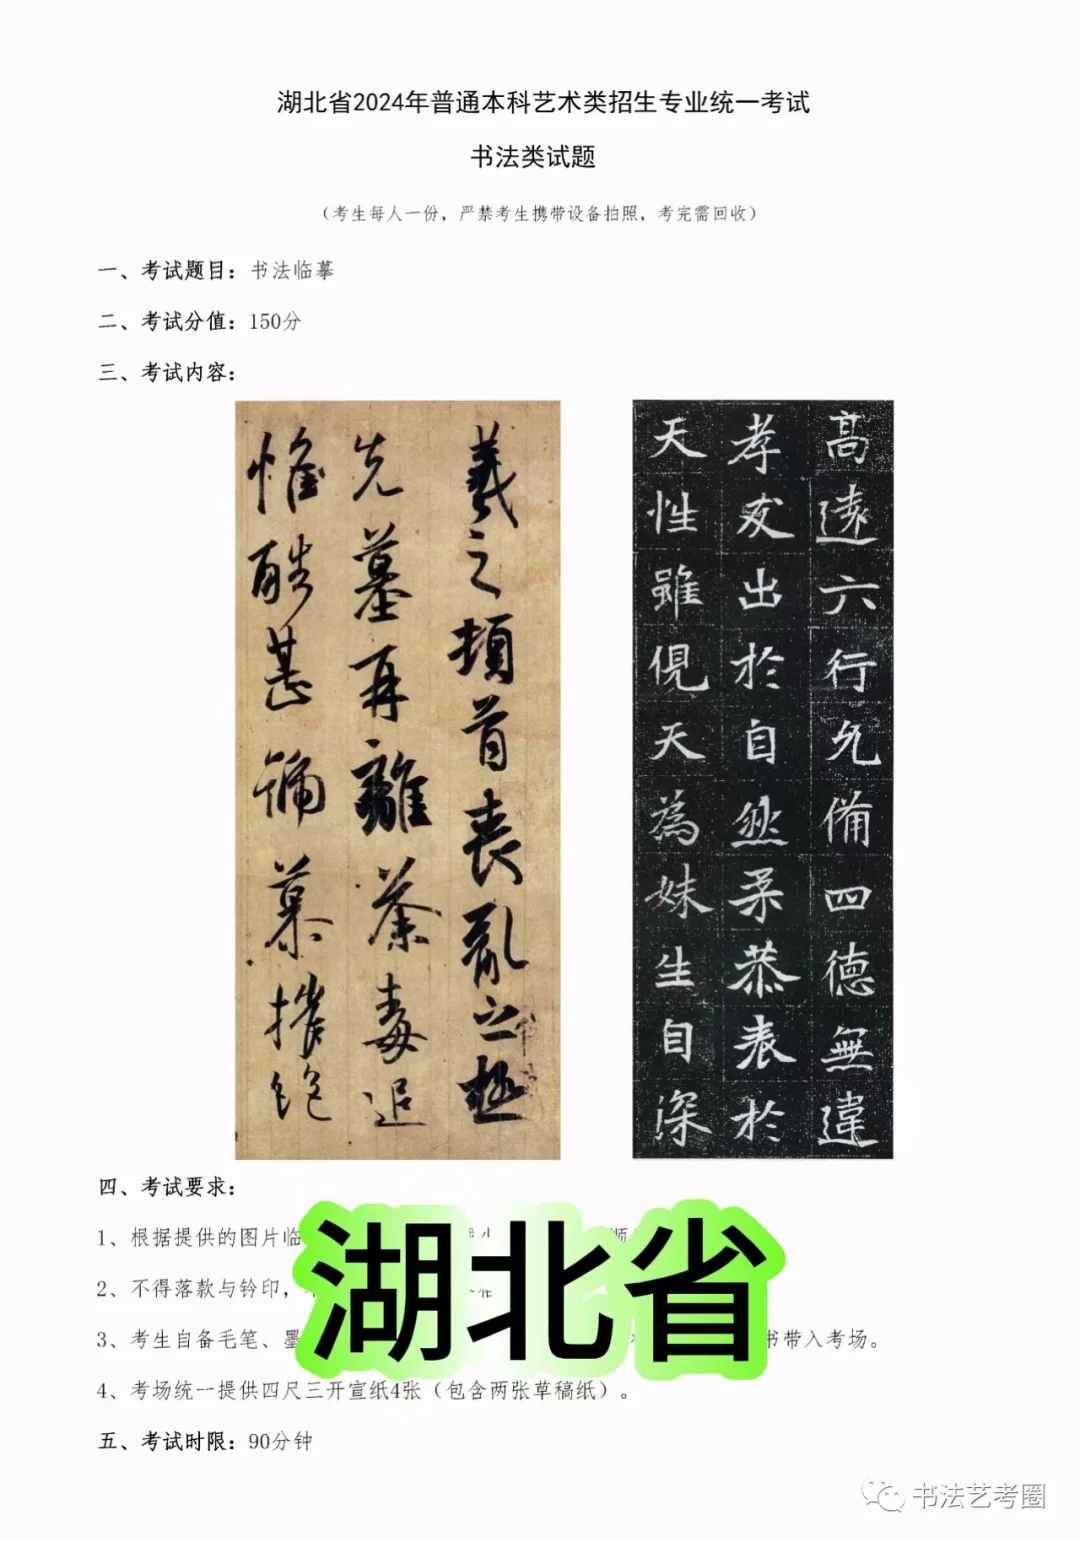 湖北省2024年普通本科艺术类招生专业统一考试
书法类试题
（考生每人一份，严禁考生携带设备拍照，考完需回收）
一、考试题目：书法临摹
二、考试分值：150分
三、考试内容：
羲之顿首丧乱之極
先墓再離荼毒追
惟酷甚號慕摧絶
高遠六行允備四德無違
孝友出於自然柔恭表於
天性雖俔天為妹生自深
四、考试要求：
1、根据提供的图片临
2、不得落款与钤印，
3、考生自备毛笔、墨
书带入考场。
4、考场统一提供四尺三开宣纸4张（包含两张草稿纸）。
五、考试时限：90分钟
湖北省
书法艺考圈